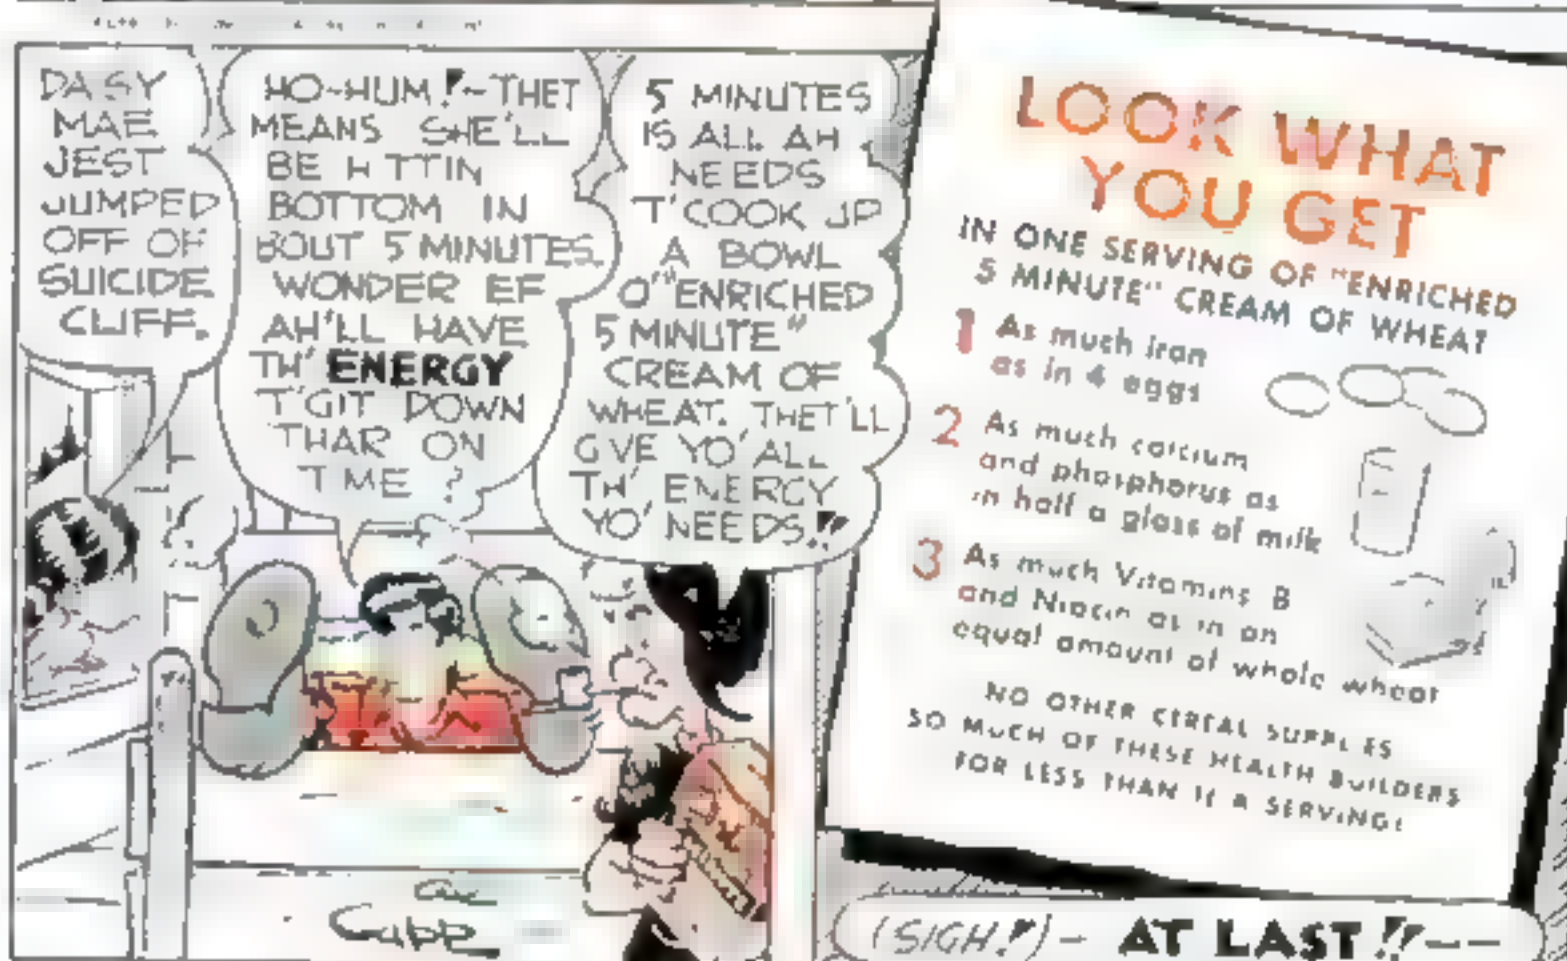 DAISY
MAE
JEST
JUMPED
OFF OF
SUICIDE
CLIFF.
HO-HUM!-THET
MEANS SHE'LL
BE HITTIN'
BOTTOM IN
BOUT 5 MINUTES.
WONDER EF
AH'LL HAVE
TH' ENERGY
T'GIT DOWN
THAR ON
TIME?
5 MINUTES
IS ALL AH
NEEDS
T'COOK UP
A BOWL
O' "ENRICHED
5 MINUTE"
CREAM OF
WHEAT. THET'LL
GIVE YO' ALL
TH' ENERGY
YO' NEEDS!!
Capp
LOOK WHAT
YOU GET
IN ONE SERVING OF "ENRICHED
5 MINUTE" CREAM OF WHEAT
1 As much iron
as in 4 eggs
2 As much calcium
and phosphorus as
in half a glass of milk
3 As much Vitamins B
and Niacin as in an
equal amount of whole wheat
NO OTHER CEREAL SUPPLIES
SO MUCH OF THESE HEALTH BUILDERS
FOR LESS THAN 1¢ A SERVING!
(SIGH!!)- AT LAST!!--